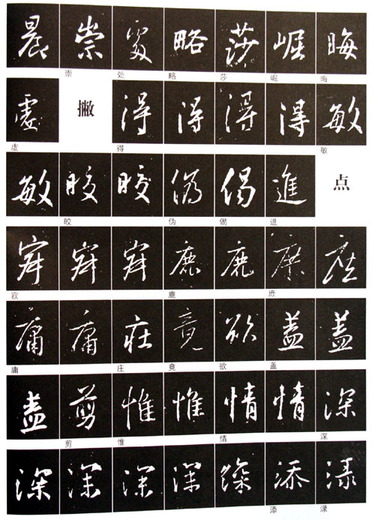 晨 崇 處 略 莎 崛 晦
崇 处 略 莎 崛 晦
虚 撇 得 得 得 得 敏
虚 得 敏
敏 皎 皎 偽 偈 進 点
皎 伪 偈 进
寂 寂 寂 鹿 鹿
寂 鹿
庸 庸 庄 竟 欲 盖 盖
庸 庄 竟 欲 盖
盖 剪 惟 惟 情 情 深
剪 惟 情 深
深 深 深 深 深 添 渌
添 渌